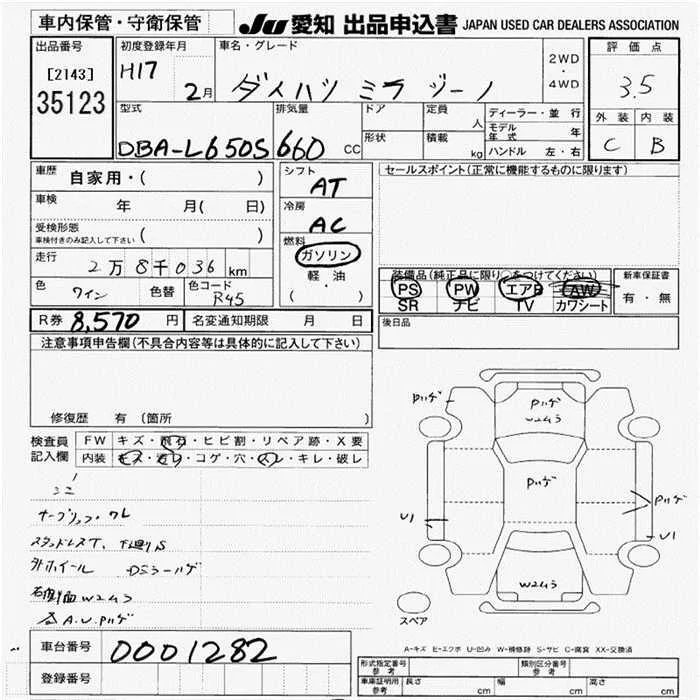 車内保管・守衛保管
JU 愛知 出品申込書 JAPAN USED CAR DEALERS ASSOCIATION
出品番号
[2143]
35123
初度登録年月
H17
2月
車名・グレード
ダイハツ ミラ ジーノ
2WD
・
4WD
評価点
3.5
外装 内装
C B
型式
DBA-L650S
排気量
660 CC
ドア
形状
定員
人
積載
kg
ディーラー・並行
モデル年式 年
ハンドル 左・右
車歴
自家用・( )
車検
年 月( 日)
受検形態
車検付きのみ記入して下さい ( )
走行
2万8千036 km
色
ワイン
色替
色コード
R45
シフト
AT
冷房
AC
燃料
ガソリン
軽・油
( ・ )
セールスポイント(正常に機能するものに限ります)
装備品(純正品に限り○をつけてください)
PS PW エアB AW
SR ナビ TV カワシート
新車保証書
有・無
後日品
R券 8,570 円
名変通知期限 月 日
注意事項申告欄(不具合内容等は具体的に記入して下さい)
修復歴 有 (箇所 )
検査員
記入欄
FW キズ・飛石・ヒビ割・リペア跡・X要
内装 キズ・汚レ・コゲ・穴・スレ・キレ・破レ
スタッドレスT、下廻りS
外ホイール Dミラーハゲ
A.U.Pハゲ
Pハゲ
Pハゲ
W2ムラ
Pハゲ
Pハゲ
U1
U1
W2ムラ
スペア
A-キズ E-エクボ U-凹み W-補修跡 S-サビ C-腐食 XX-交換済
車台番号
0001282
登録番号
形式指定番号
参考
類別区分番号
参考
車庫証明用
参考
長さ cm
幅 cm
高さ cm